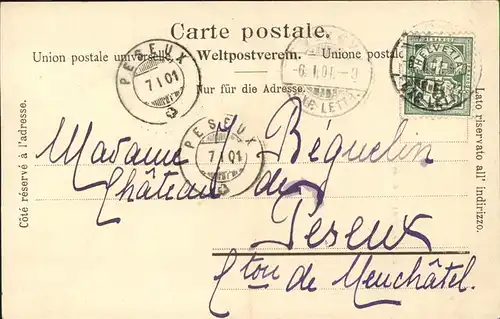 Carte postale.
Union postale universelle. Weltpostverein. Unione postale
Nur für die Adresse.
Côté réservé à l'adresse.
Lato riservato all' indirizzo.
PESEUX
7 I 01
PESEUX
7 I 01
6. I. 01.-9
HELVETIA
Madame Béguelin
Château de
Peseux
Cton de Neuchâtel.